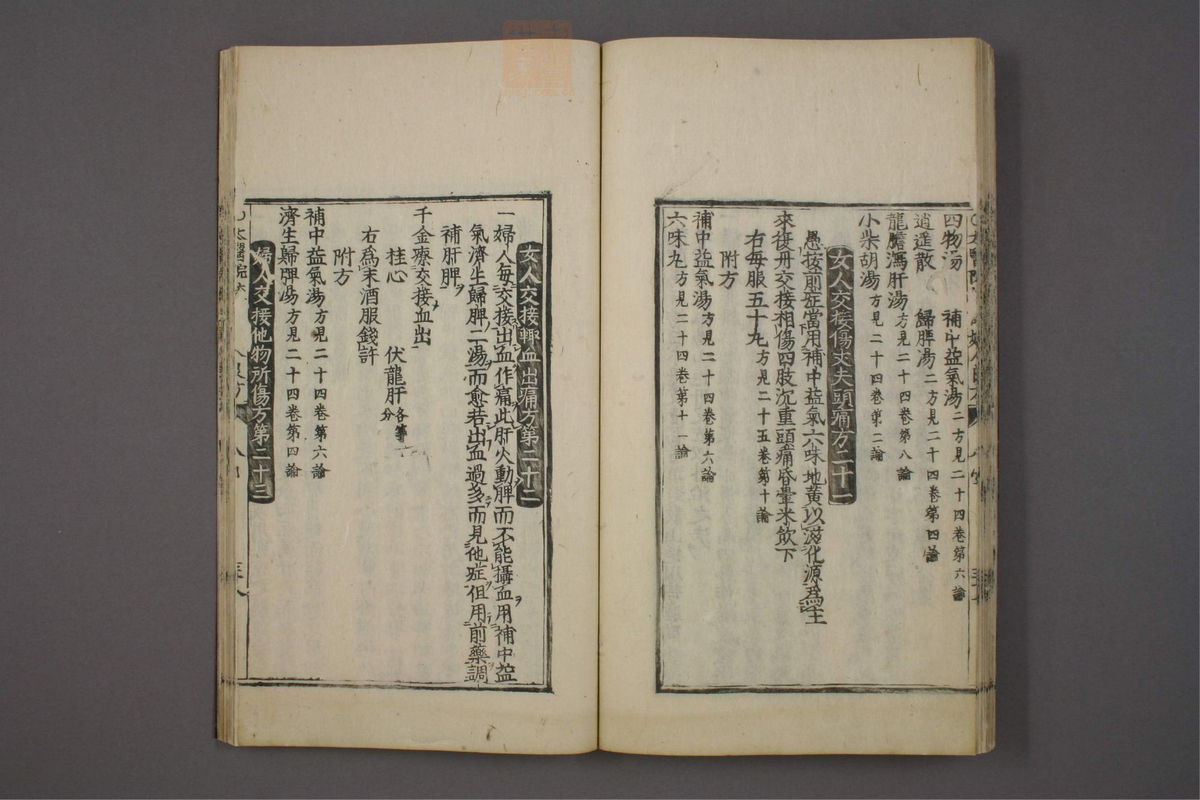 四物湯 補中益氣湯二方見二十四卷第六論
逍遥散 歸脾湯二方見二十四卷第四論
龍膽瀉肝湯方見二十四卷第八論
小柴胡湯方見二十四卷第二論
女人交接傷丈夫頭痛方二十一
愚按前症當用補中益氣六味地黄以滋化源爲主
來復丹交接相傷四肢沉重頭痛昏暈米飲下
右毎服五十丸方見二十五卷第十論
附方
補中益氣湯方見二十四卷第六論
六味丸方見二十四卷第十一論
女人交接輙血出痛方第二十二
一婦人毎交接出血作痛此肝火動脾而不能攝血用補中益
氣濟生歸脾二湯而愈若出血過多而見他症但用前藥調
補肝脾
千金療交接血出
桂心 伏龍肝各等分
右爲末酒服錢許
附方
補中益氣湯方見二十四卷第六論
濟生歸脾湯方見二十四卷第四論
婦人交接他物所傷方第二十三